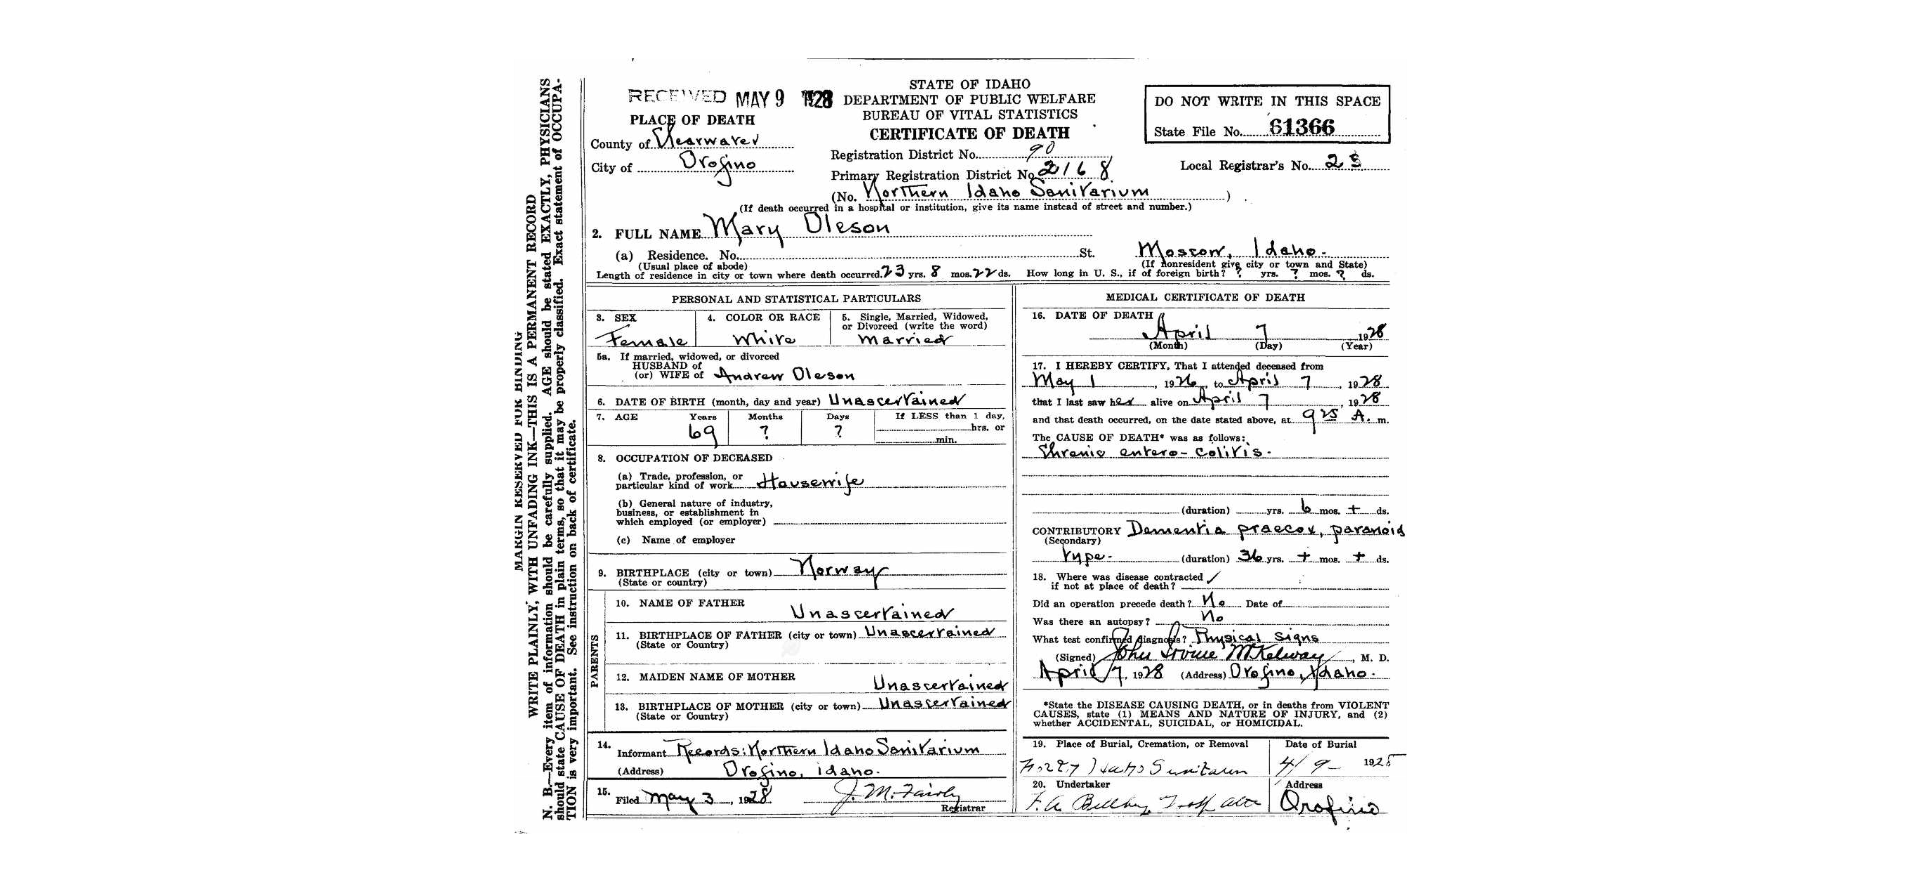 RECEIVED MAY 9 1928
STATE OF IDAHO
DEPARTMENT OF PUBLIC WELFARE
BUREAU OF VITAL STATISTICS
CERTIFICATE OF DEATH
DO NOT WRITE IN THIS SPACE
State File No. 61366
PLACE OF DEATH
County of Clearwater
City of Orofino
Registration District No. 90
Primary Registration District No. 2168
Local Registrar's No. 23
(No. Northern Idaho Sanitarium )
(If death occurred in a hospital or institution, give its name instead of street and number.)
2. FULL NAME Mary Oleson
(a) Residence. No. St. Moscow, Idaho.
(Usual place of abode) (If nonresident give city or town and State)
Length of residence in city or town where death occurred. 23 yrs. 8 mos. 22 ds. How long in U. S., if of foreign birth? ? yrs. ? mos. ? ds.
PERSONAL AND STATISTICAL PARTICULARS
3. SEX
Female
4. COLOR OR RACE
White
5. Single, Married, Widowed,
or Divorced (write the word)
Married
5a. If married, widowed, or divorced
HUSBAND of
(or) WIFE of Andrew Oleson
6. DATE OF BIRTH (month, day and year) Unascertained
7. AGE Years Months Days If LESS than 1 day,
69 ? ? hrs. or
min.
8. OCCUPATION OF DECEASED
(a) Trade, profession, or
particular kind of work Housewife
(b) General nature of industry,
business, or establishment in
which employed (or employer)
(c) Name of employer
9. BIRTHPLACE (city or town) Norway
(State or country)
PARENTS
10. NAME OF FATHER
Unascertained
11. BIRTHPLACE OF FATHER (city or town) Unascertained
(State or Country)
12. MAIDEN NAME OF MOTHER
Unascertained
13. BIRTHPLACE OF MOTHER (city or town) Unascertained
(State or Country)
14.
Informant Records: Northern Idaho Sanitarium
(Address) Orofino, idaho.
15.
Filed May 3, 1928 J. M. Fairly
Registrar
MEDICAL CERTIFICATE OF DEATH
16. DATE OF DEATH
April 7 1928
(Month) (Day) (Year)
17. I HEREBY CERTIFY, That I attended deceased from
May 1, 1926, to April 7, 1928
that I last saw her alive on April 7, 1928
and that death occurred, on the date stated above, at 9 25 A. m.
The CAUSE OF DEATH* was as follows:
Chronic entero-colitis.
(duration) yrs. 6 mos. + ds.
CONTRIBUTORY Dementia praecox, paranoid
(Secondary)
type. (duration) 36 yrs. + mos. + ds.
18. Where was disease contracted
if not at place of death?
Did an operation precede death? No Date of
Was there an autopsy? No
What test confirmed diagnosis? Physical signs
(Signed) John Irvine McKelway, M. D.
April 7, 1928 (Address) Orofino, Idaho.
*State the DISEASE CAUSING DEATH, or in deaths from VIOLENT
CAUSES, state (1) MEANS AND NATURE OF INJURY, and (2)
whether ACCIDENTAL, SUICIDAL, or HOMICIDAL.
19. Place of Burial, Cremation, or Removal Date of Burial
Idaho Sanitarium 4/9- 1928
20. Undertaker Address
Orofino
MARGIN RESERVED FOR BINDING
WRITE PLAINLY, WITH UNFADING INK—THIS IS A PERMANENT RECORD
N. B.—Every item of information should be carefully supplied. AGE should be stated EXACTLY, PHYSICIANS
should state CAUSE OF DEATH in plain terms, so that it may be properly classified. Exact statement of OCCUPA-
TION is very important. See instruction on back of certificate.